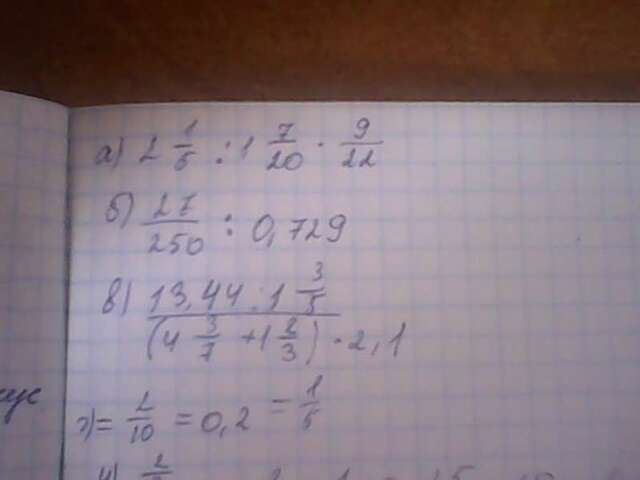 а) 2 1/5 : 1 7/20 · 9/22
б) 27/250 : 0,729
в) 13,44 : 1 3/5
(4 3/7 + 1 2/3) · 2,1
= 2/10 = 0,2 = 1/5